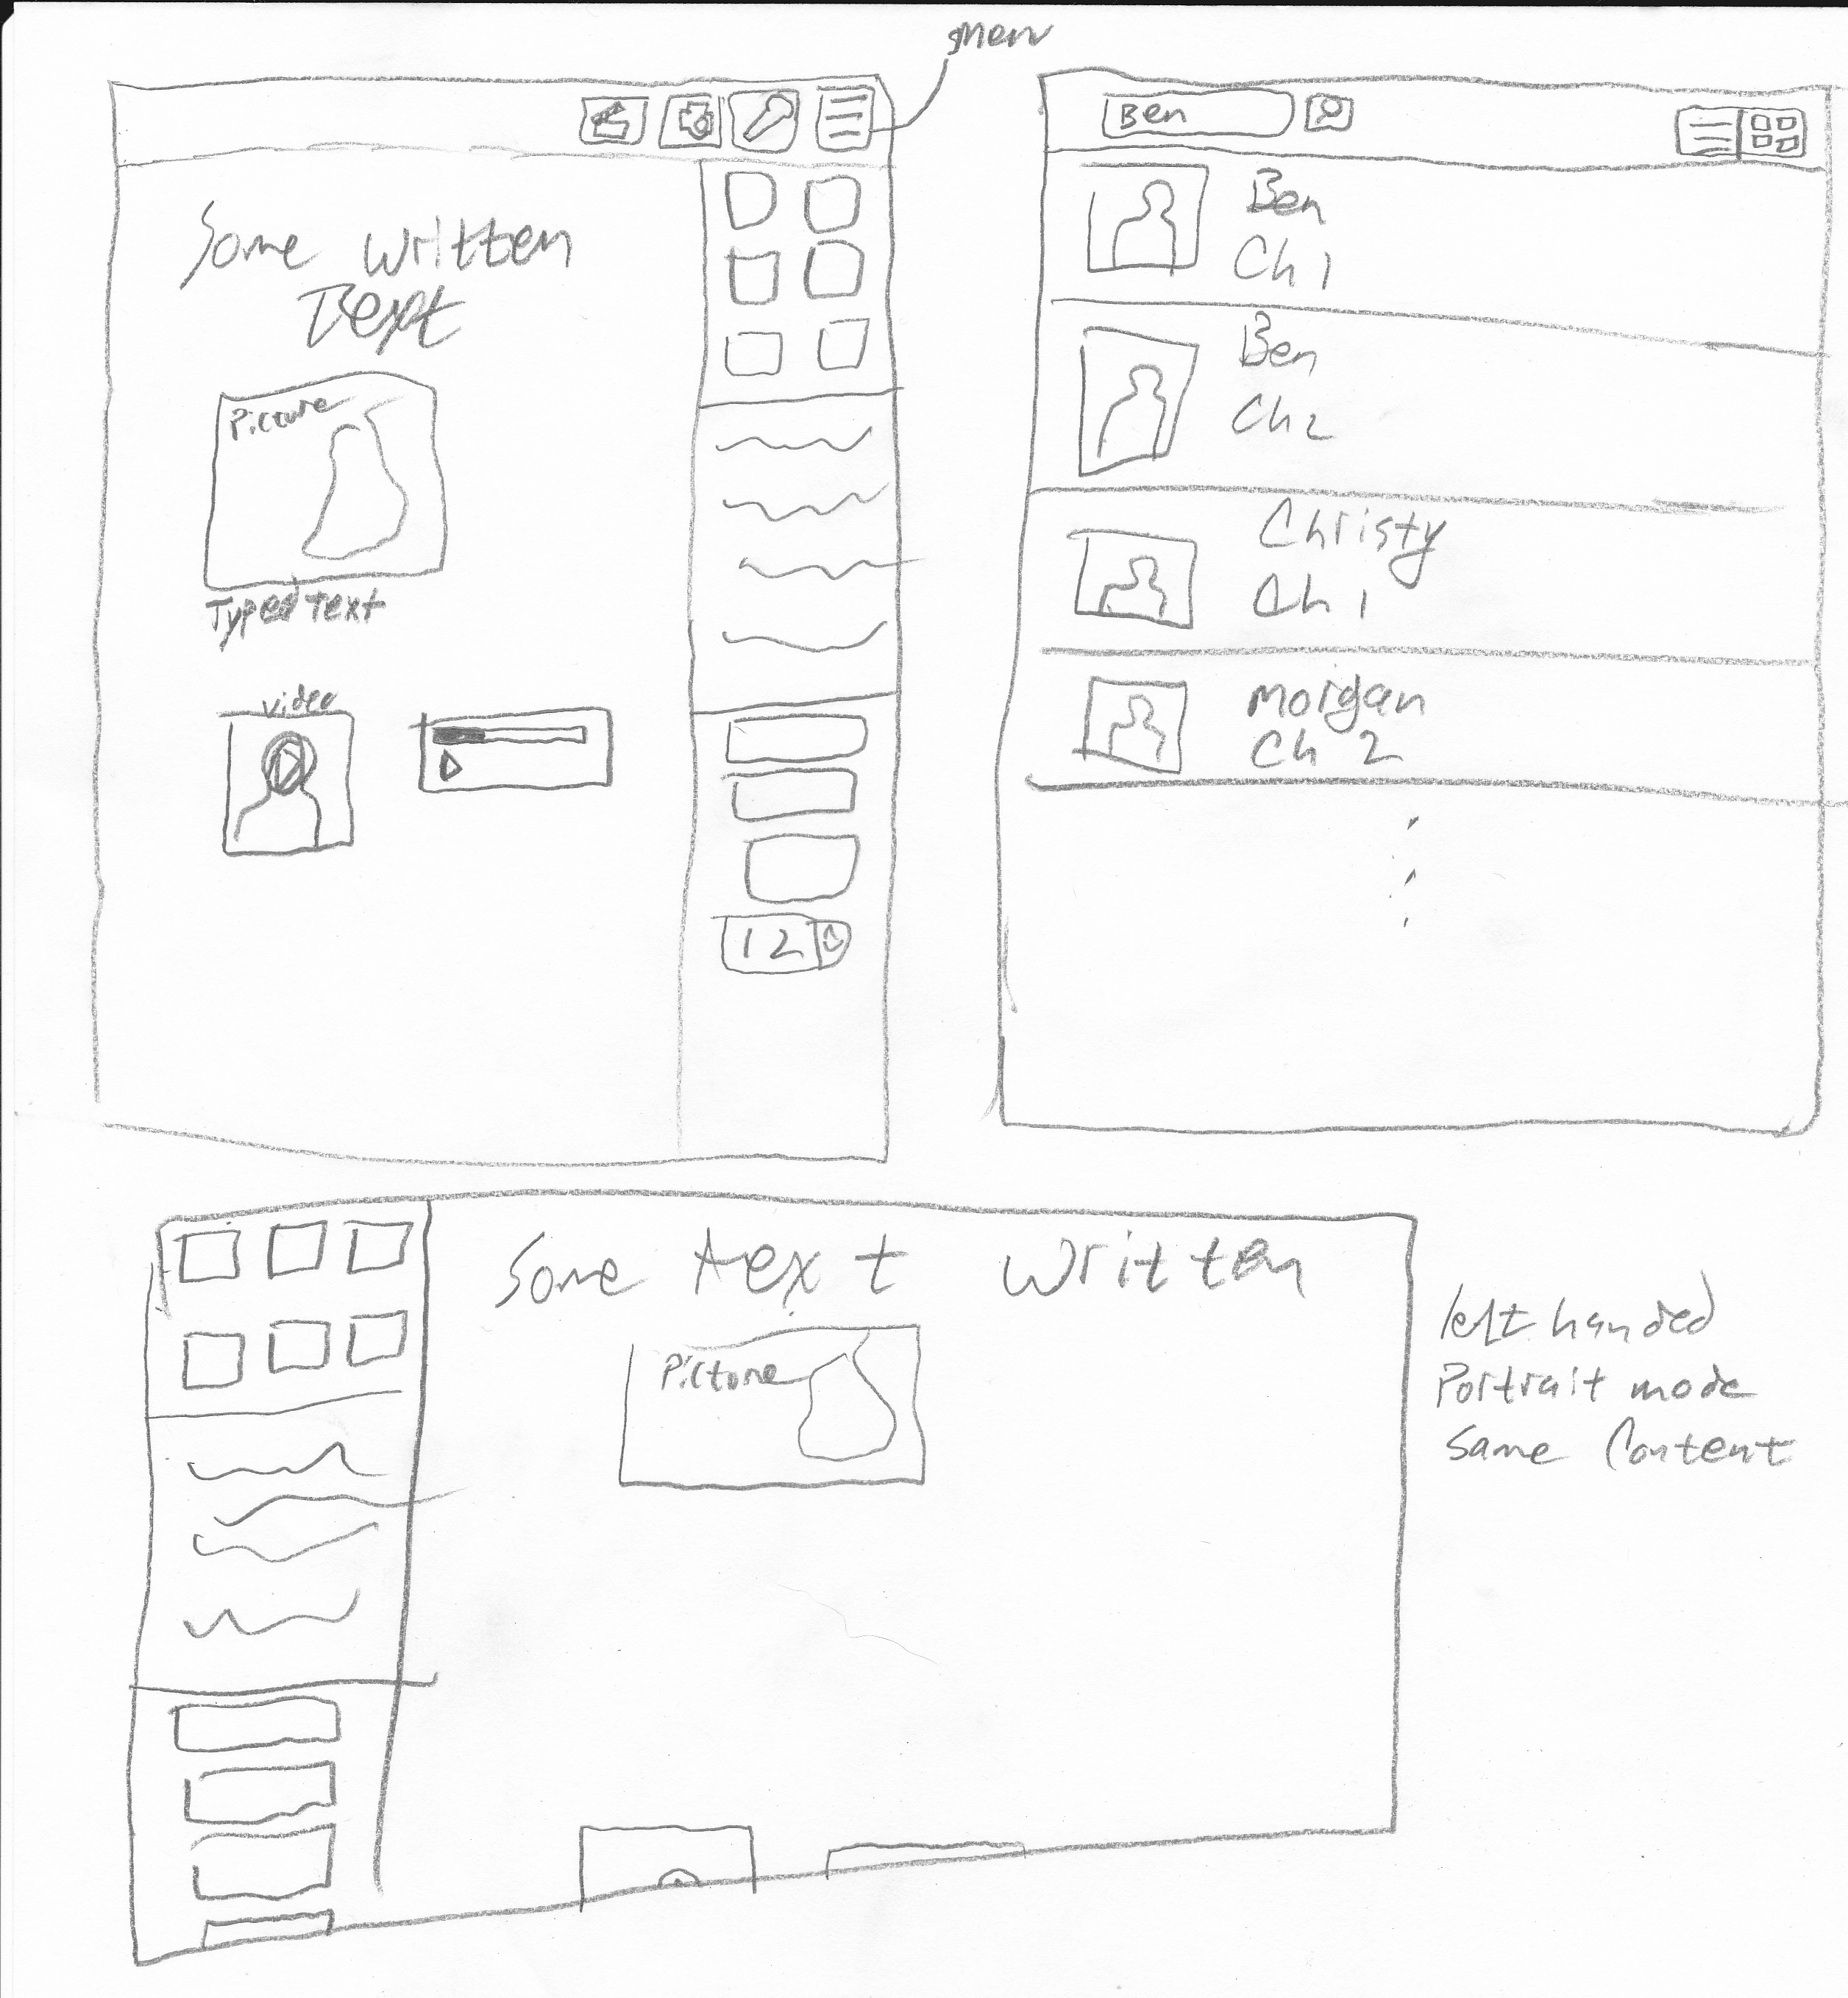 Menu
Some written
Text
Picture
Typed text
video
12
Ben
Ben
Ch 1
Ben
Ch 2
Christy
Ch 1
Morgan
Ch 2
Some text written
Picture
left handed
Portrait mode
Same Content